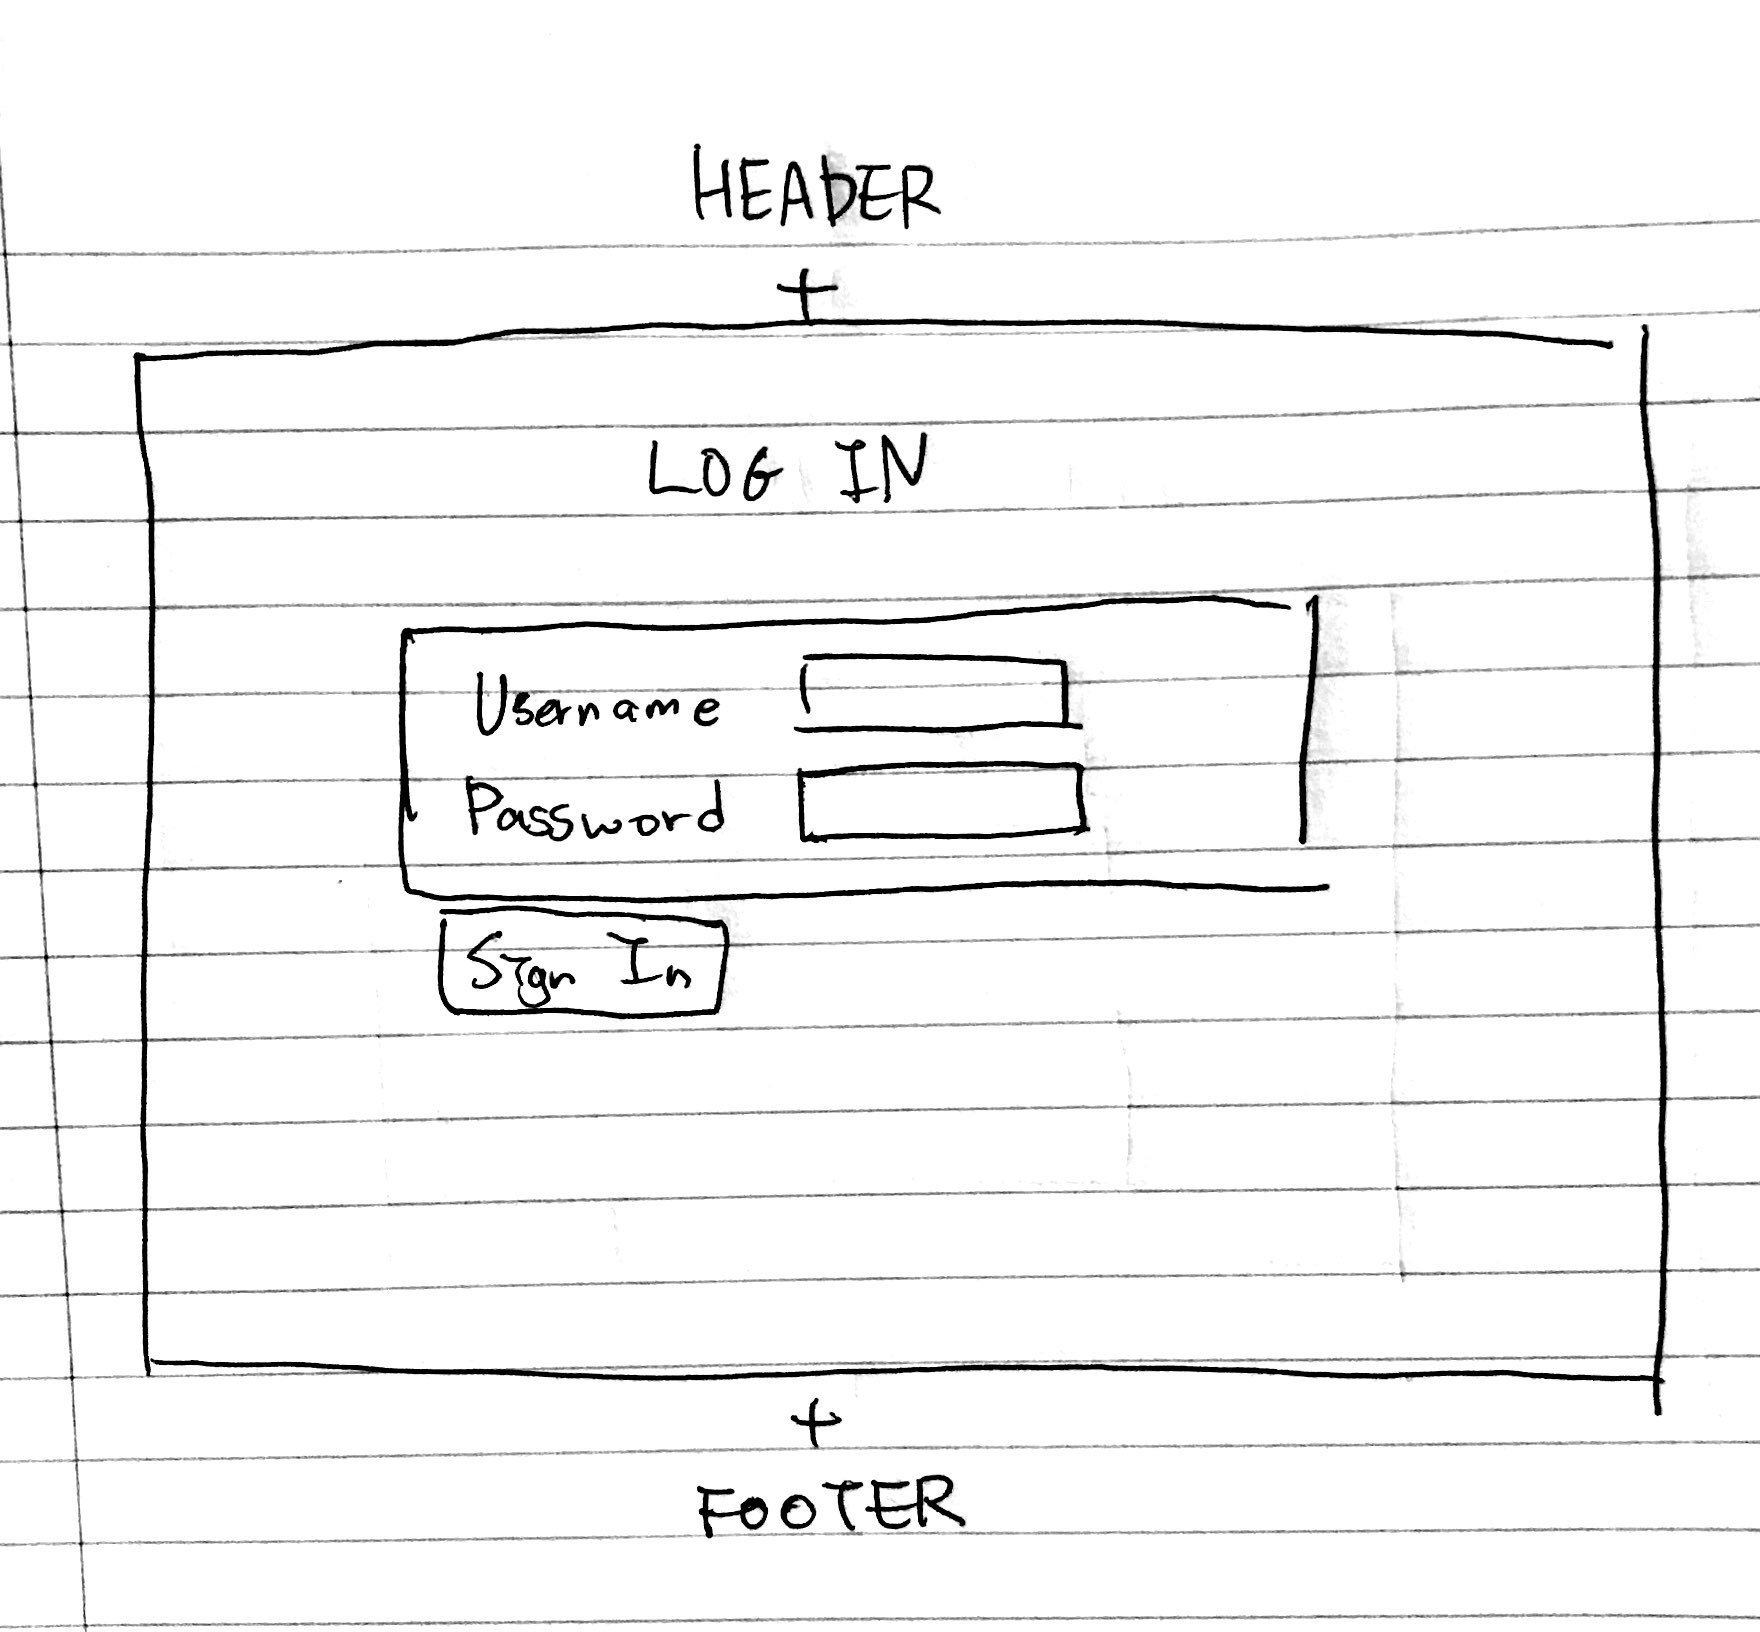 HEADER
+
LOG IN
Username
Password
Sign In
+
FOOTER